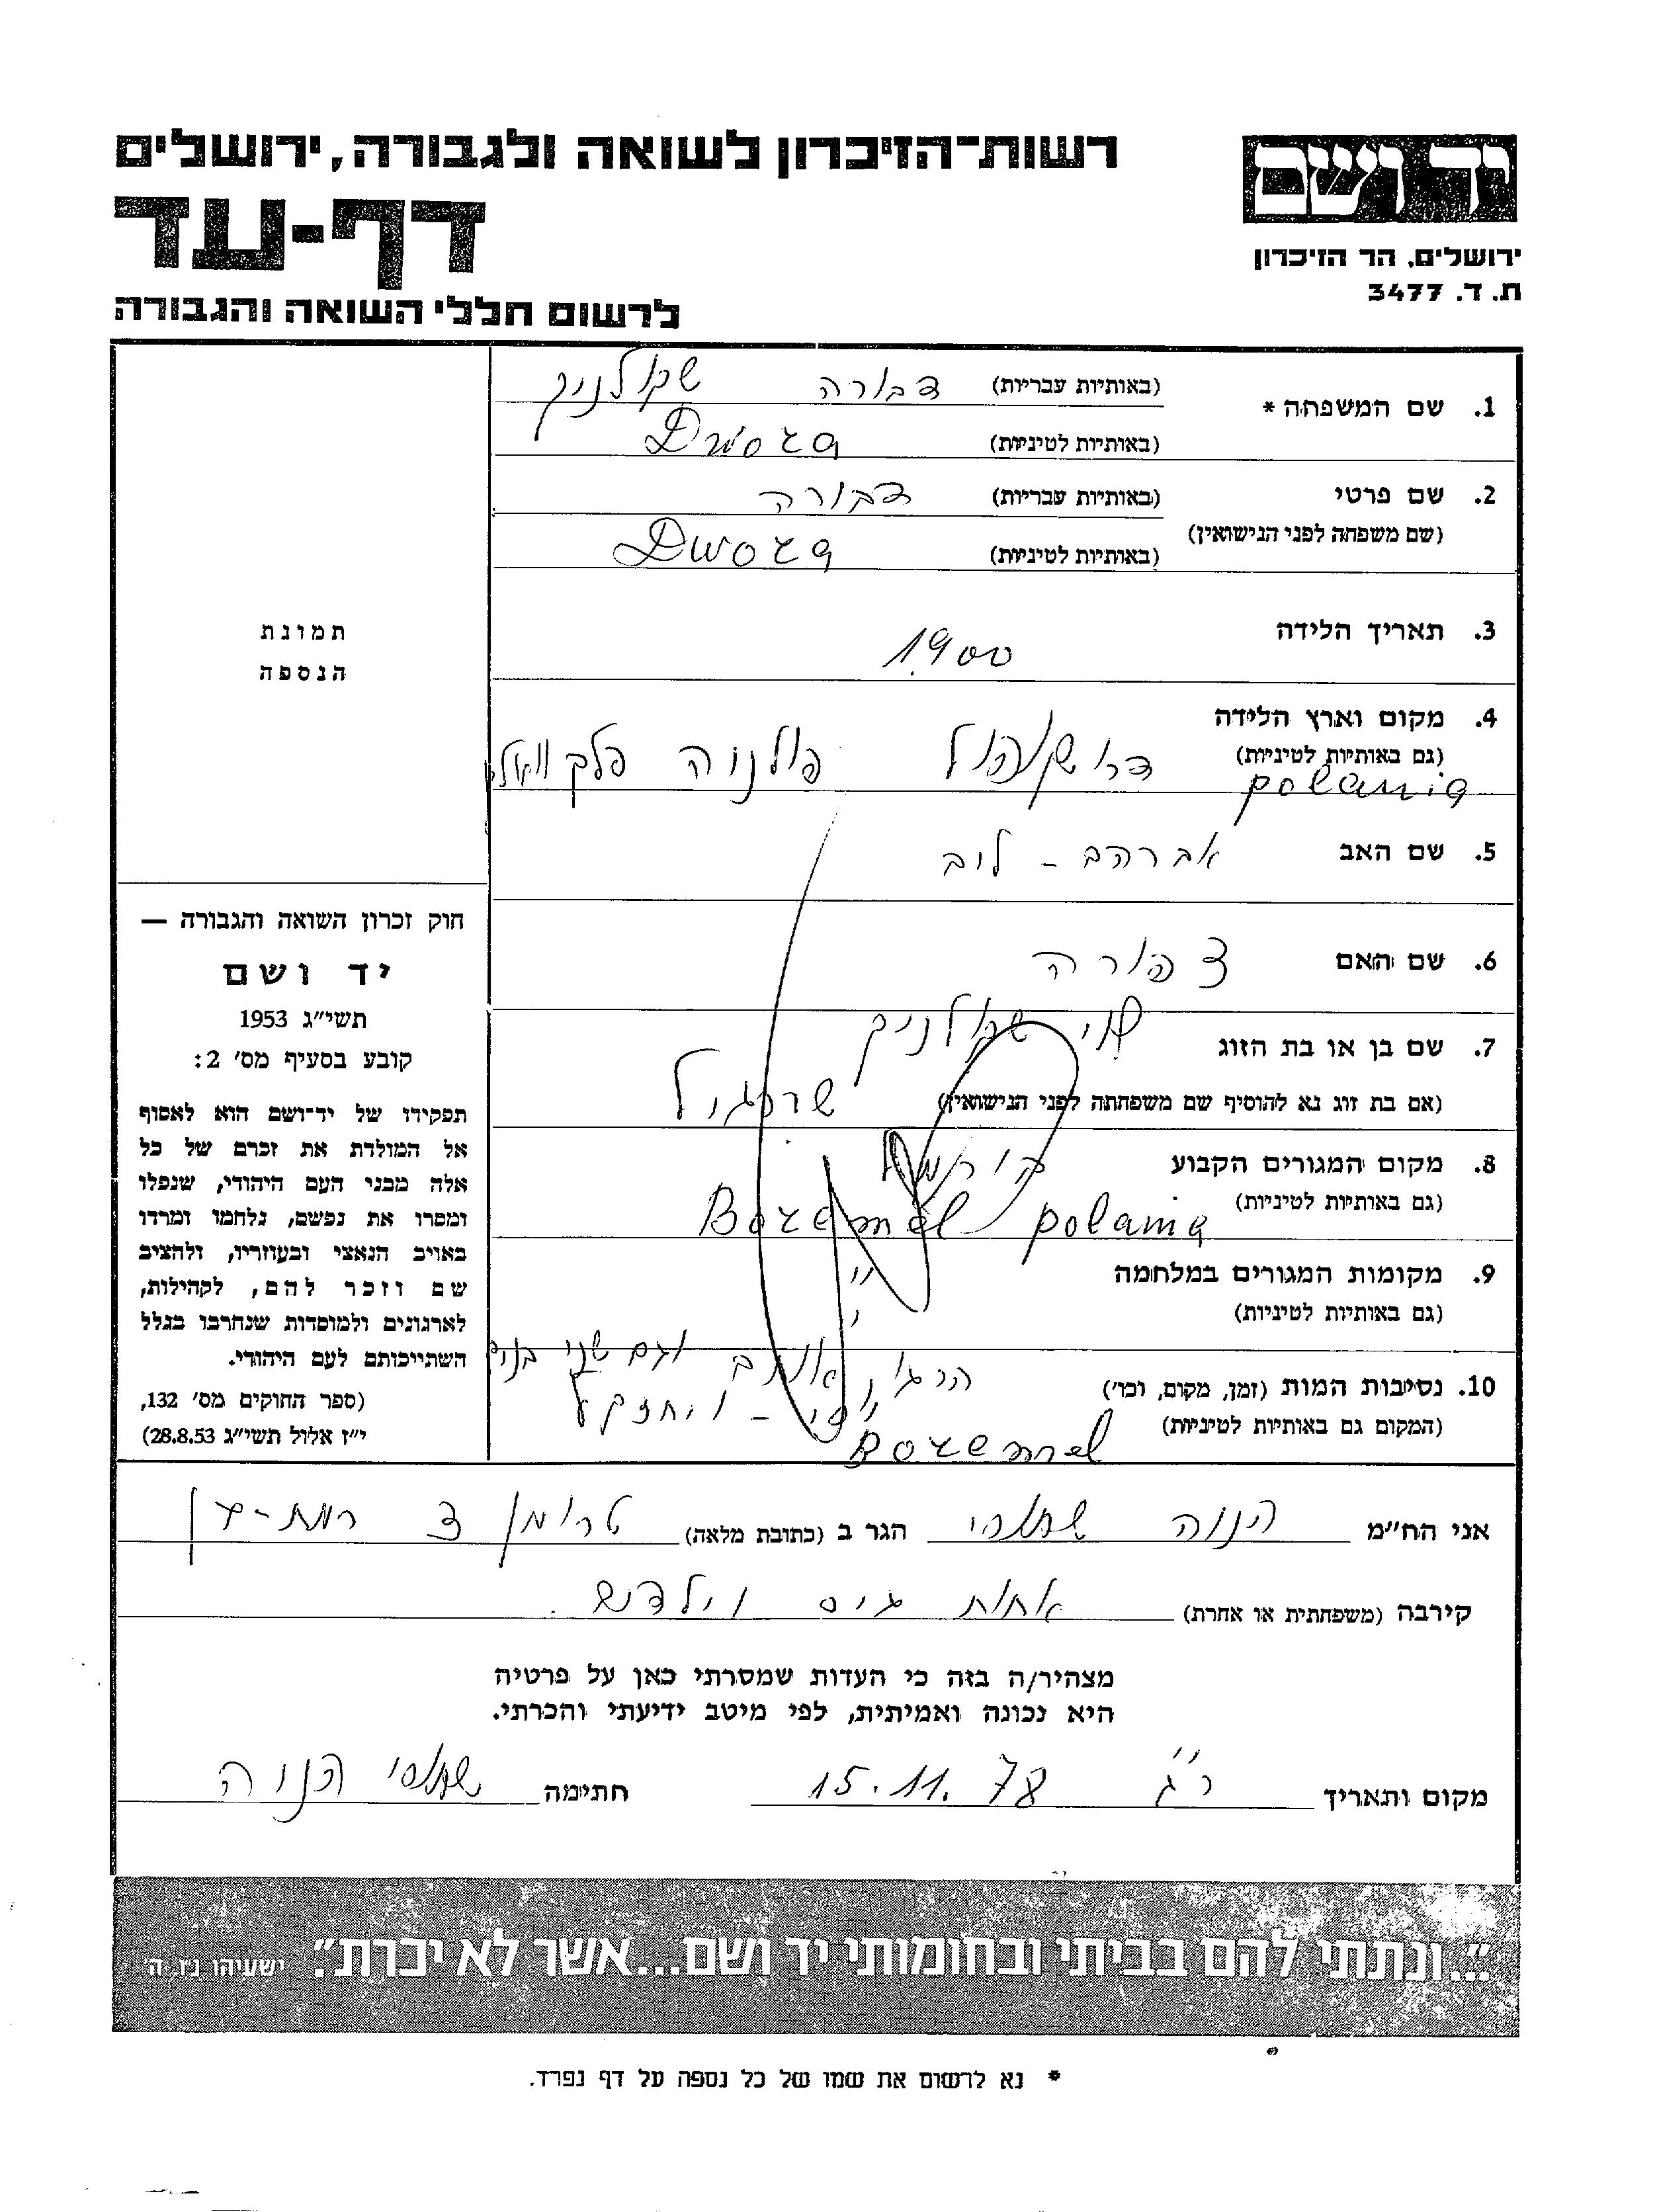 יד ושם
רשות־הזיכרון לשואה ולגבורה, ירושלים
דף-עד
לרשום חללי השואה והגבורה
ירושלים, הר הזיכרון
ת. ד. 3477
1. שם המשפחה * (באותיות עבריות) דבורה שקולניק
(באותיות לטיניות) Dwora
2. שם פרטי (באותיות עבריות) דבורה
(שם משפחה לפני הנישואין)
(באותיות לטיניות) Dwora
3. תאריך הלידה 1900
4. מקום וארץ הלידה
(גם באותיות לטיניות) פולניה פלק
polania
5. שם האב אברהב - לוב
6. שם האם צפורה
7. שם בן או בת הזוג שקולניק
(אם בת זוג נא להוסיף שם משפחתה לפני הנישואין)
8. מקום המגורים הקבוע
(גם באותיות לטיניות) Boremel polania
9. מקומות המגורים במלחמה "
(גם באותיות לטיניות)
10. נסיבות המות (זמן, מקום, וכו') הרגו אותם וגם שני בניה
(המקום גם באותיות לטיניות)
Boremel
תמונת
הנספה
חוק זכרון השואה והגבורה —
יד ושם
תשי"ג 1953
קובע בסעיף מס' 2:
תפקידו של יד־ושם הוא לאסוף
אל המולדת את זכרם של כל
אלה מבני העם היהודי, שנפלו
ומסרו את נפשם, נלחמו ומרדו
באויב הנאצי ובעוזריו, ולהציב
שם וזכר להם, לקהילות,
לארגונים ולמוסדות שנחרבו בגלל
השתייכותם לעם היהודי.
(ספר החוקים מס' 132,
י"ז אלול תשי"ג 28.8.53)
אני הח"מ הגר ב (כתובת מלאה) טרומן 3 רמת-גן
קירבה (משפחתית או אחרת) אחות גיס וילדים.
מצהיר/ה בזה כי העדות שמסרתי כאן על פרטיה
היא נכונה ואמיתית, לפי מיטב ידיעתי והכרתי.
מקום ותאריך ר"ג 15.11.78 חתימה
"...ונתתי להם בביתי ובחומותי יד ושם...אשר לא יכרת": ישעיהו נו, ה'
* נא לרשום את שמו של כל נספה על דף נפרד.